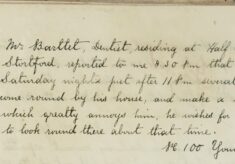 Mr Bartlet, Dentist, residing at Half
Stortford, reported to me 8.30 Pm that
Saturday nights just after 11 Pm several
come round by his house, and make a
which greatly annoys him, he wished for
to look round there about that time.
PC 100 Youn